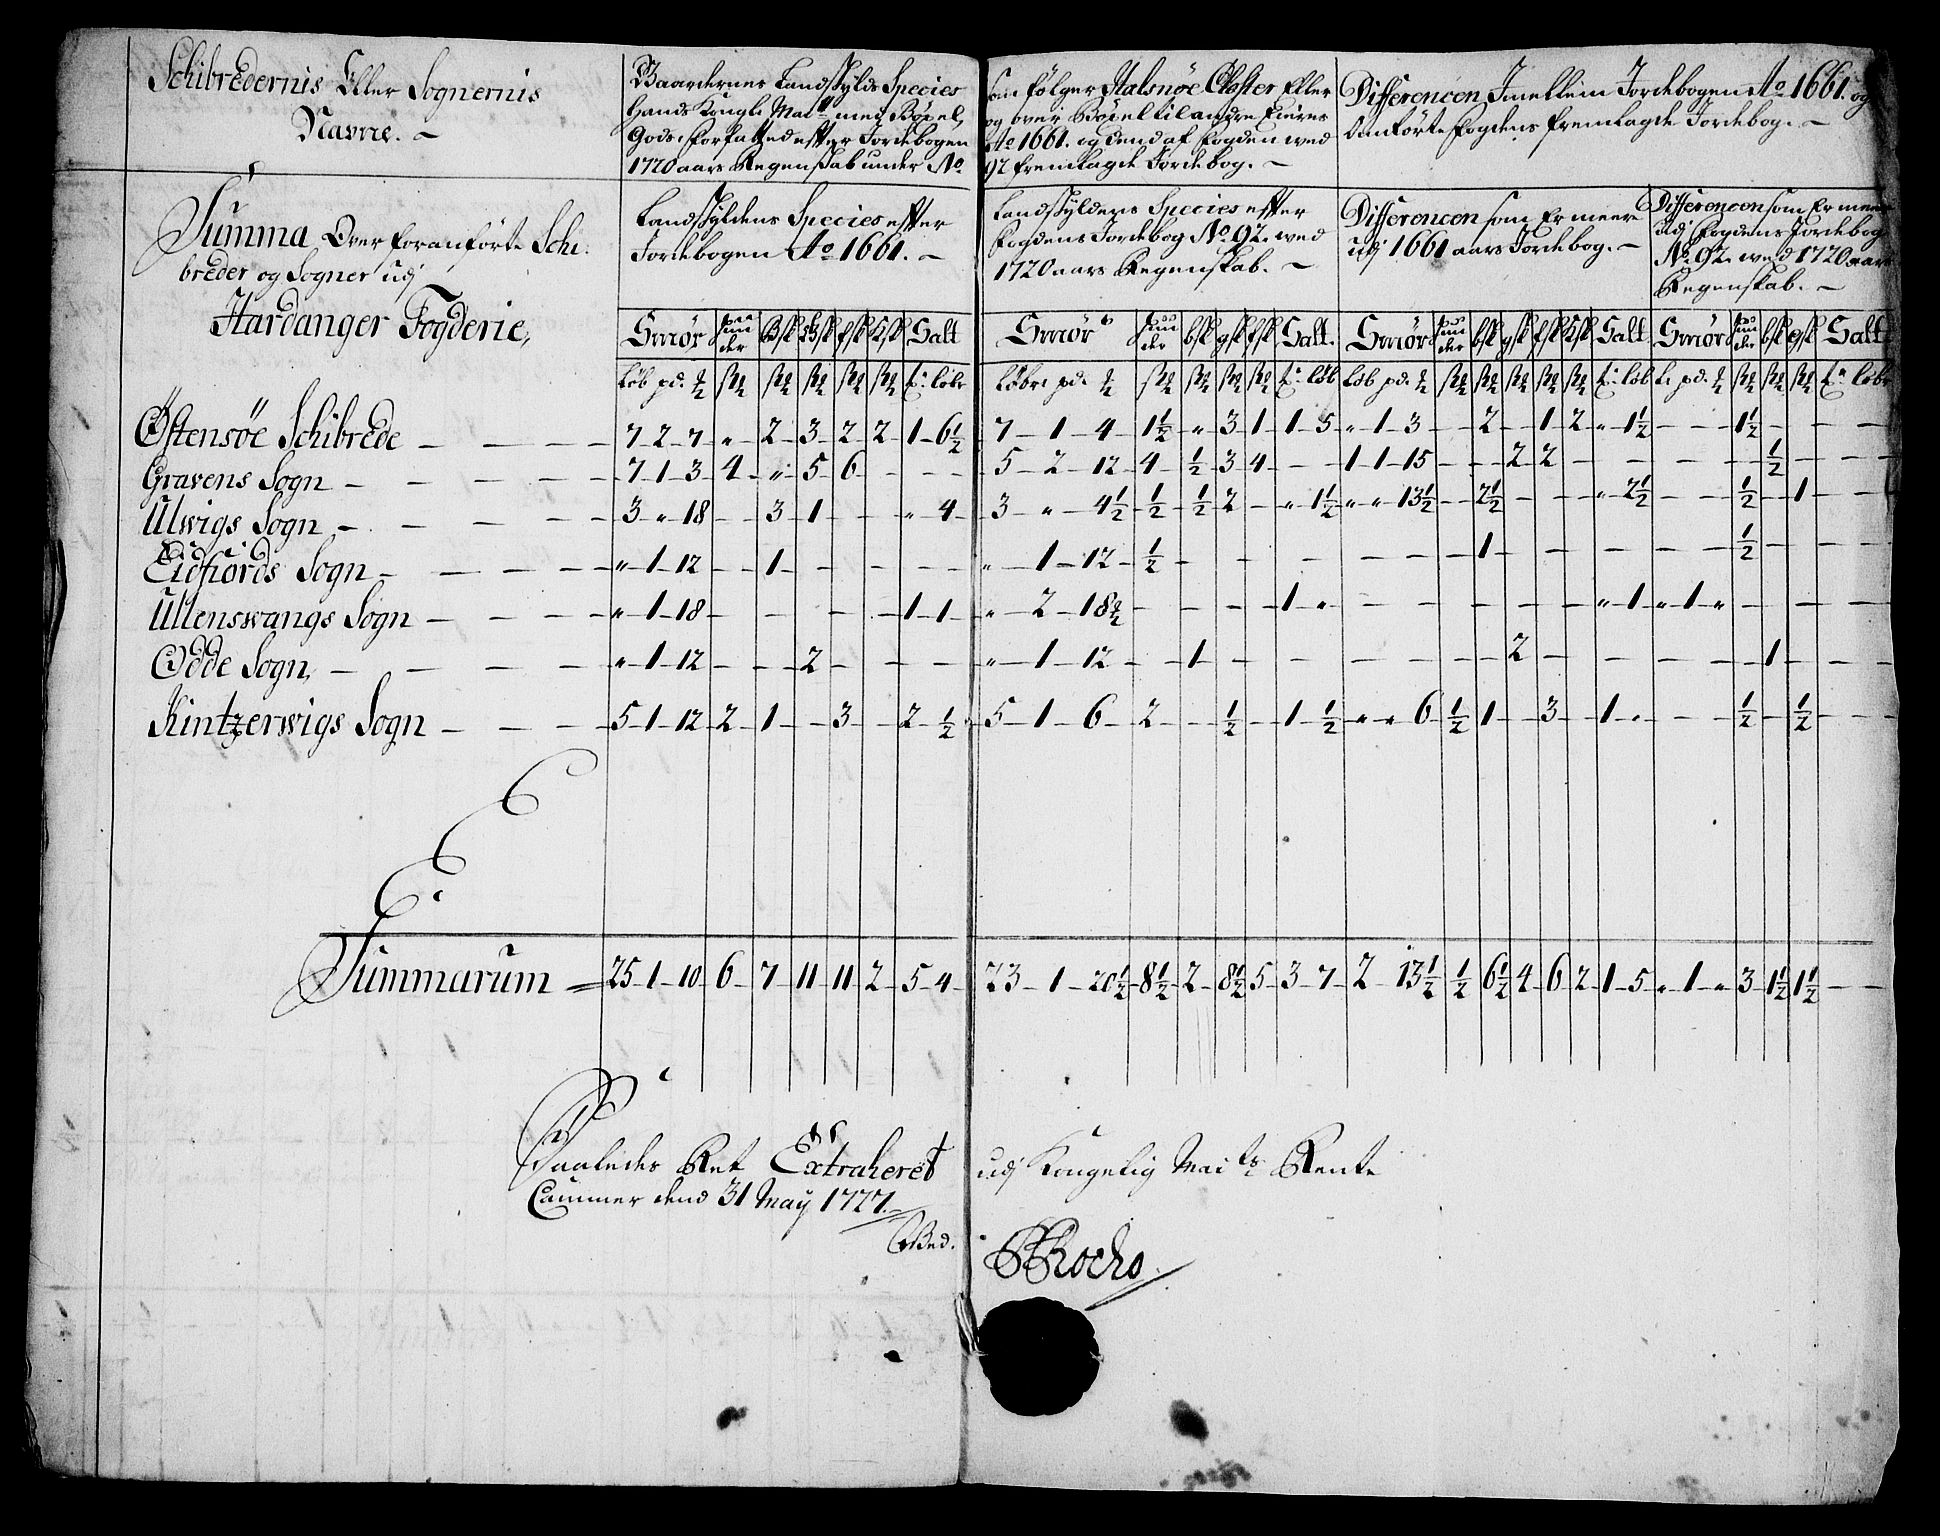 Schibredernis Eller Sognernis
Navne. –
Gaardernes Landskylds Species
Hans Kongl: Maÿtt med Bÿxel,
Gods, forfatted efter Jordebogen
1720 aars Regenskab under No
som følger Halsnöe Closter Eller
og over Bÿxel til andre Eiere
Ao 1661. og dend af Fogden wed
92 fremlagde Jordebog. –
Differencen Imellem Jordebogen Ao 1661. og
Anförte Fogdens fremlagde Jordebog. –
Summa Over foranförte Schi:
breder og Sogner udj
Hardanger Fogderie,
Landskyldens Species efter
Jordebogen Ao 1661. –
Landskyldens Species efter
Fogdens Jordebog No 92. wed
1720 aars Regenskab. –
Differencen som Er meere
udj 1661 aars Jordebog. –
Differencen som Er meere
udj Fogdens Jordebog
No 92. wed 1720 aars
Regenskab. –
Smör Huder Bsk gsk fsk Ksk Salt Smör Huder bsk gsk fsk Salt. Smör Huder bsk gsk fsk Ksk Salt Smör Huder bsk gsk Salt
Östensöe Schibrede – 7 – 2 – 7 „ 2 3 2 2 1 – 6½ 7 – 1 – 4 1½ „ 3 1 1 – 5 „ – 1 – 3 – 2 – 1 2 „ – 1½ – – 1½ – – –
Gravens Sogn – 7 – 1 – 3 4 „ 5 6 – – – 5 – 2 – 12 4 ½ 3 4 – – 1 – 1 – 15 – – 2 2 – – – – – ½ – – –
Ulwigs Sogn – 3 „ 18 – 3 1 – – „ 4 3 – „ – 4½ ½ ½ 2 – „ 1½ „ „ 13½ – 2½ – – – „ 2½ – – ½ – 1 – –
Eidfiords Sogn – „ 1 – 12 – 1 – – – – – „ – 1 – 12 ½ – – – – – – – – 1 – – – – – – ½ – – – –
Ullenswangs Sogn – „ 1 – 18 – – – – – 1 – 1 „ – 2 – 18 – – – – 1 „ – – – – – – – „ 1 „ 1 „ – – – – –
Odde Sogn, – „ 1 – 12 – – 2 – – – – „ – 1 – 12 – 1 – – – – – – – – 2 – – – – – – – 1 – – –
Kintzerwigs Sogn – 5 – 1 – 12 2 1 – 3 – 2 ½ 5 – 1 – 6 2 – ½ – 1 ½ „ „ 6 ½ 1 – 3 – 1 „ – – ½ – ½ – –
Summarum = 25 – 1 – 10 6 7 11 11 2 5 – 4 23 – 1 – 20½ 8½ 2 8½ 5 3 – 7 2 – 13½ ½ 6½ 4 6 2 1 – 5 „ 1 „ 3 1½ 1½ – –
Saaledes Ret Extraheret udj Kongelig Maÿts Rente
Cammer dend 31 Maÿ 1727.
Wed.